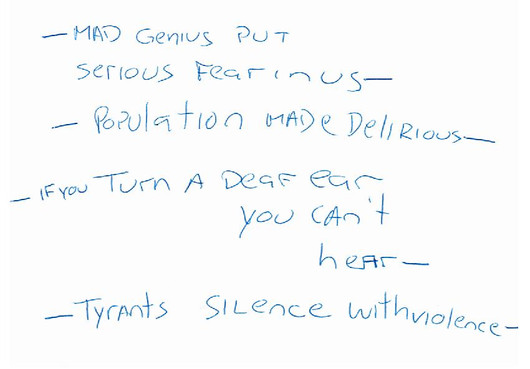 — MAD Genius PUT
serious Fear in us —
— Population MADe DeliRious —
— IF you Turn A Deaf ear
you CAn't
heAr —
— Tyrants SiLence with violence —